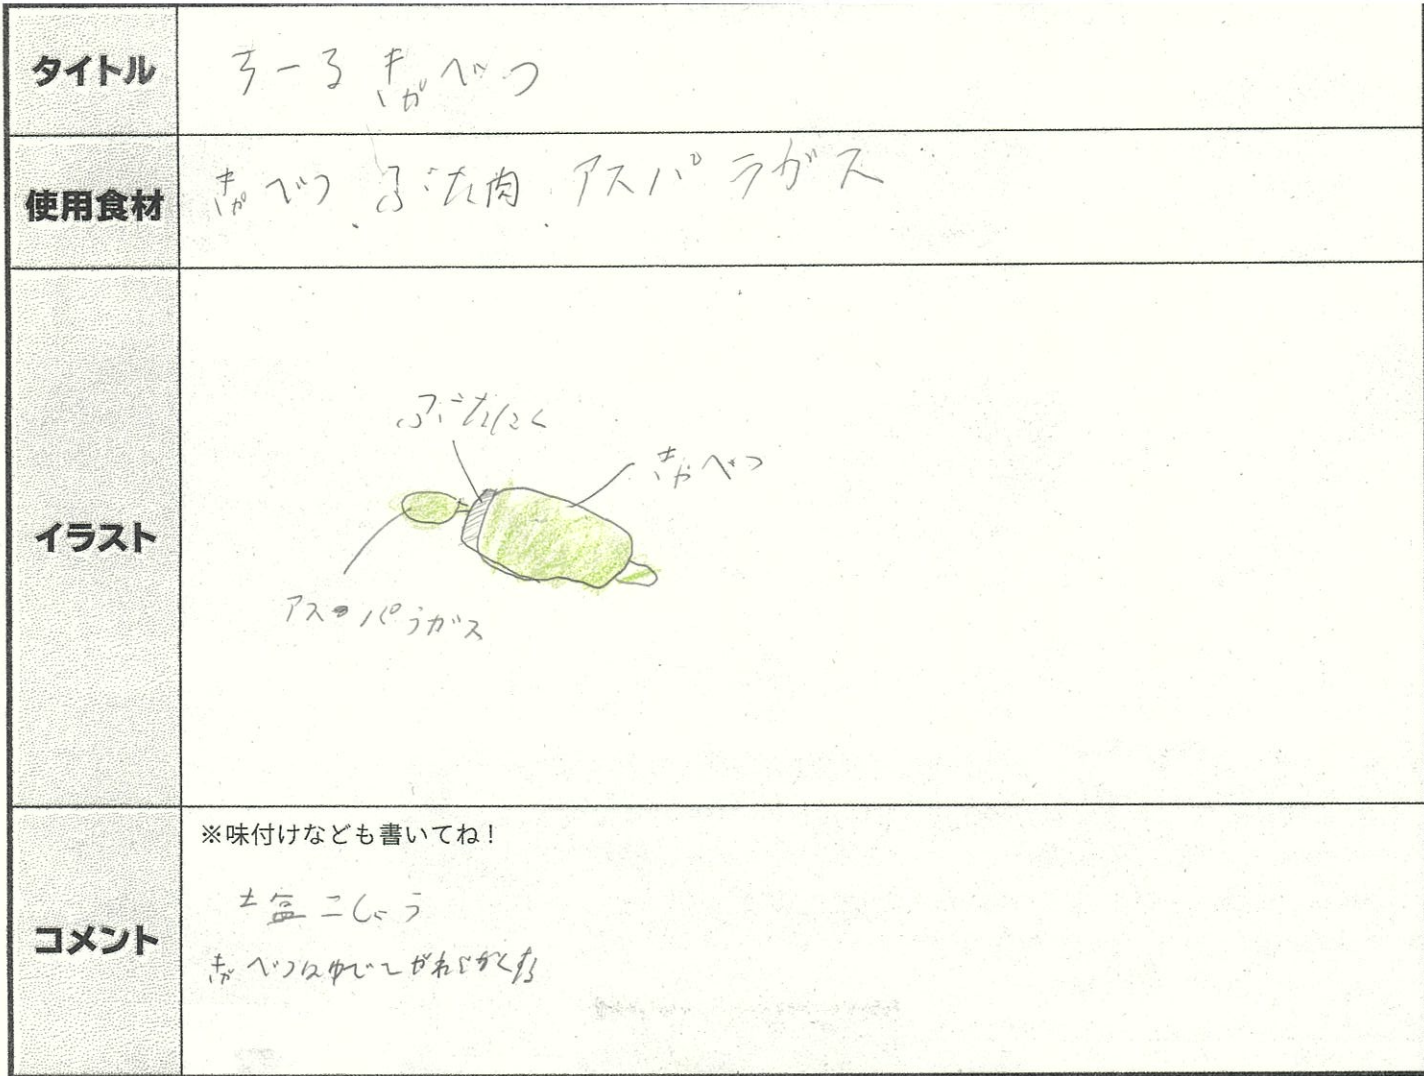 タイトル
すーるきゃべつ
使用食材
きゃべつ、ぶた肉、アスパラガス
イラスト
ぶたにく
きゃべつ
アスパラガス
コメント
※味付けなども書いてね!
塩こしょう
きゃべつはゆでて